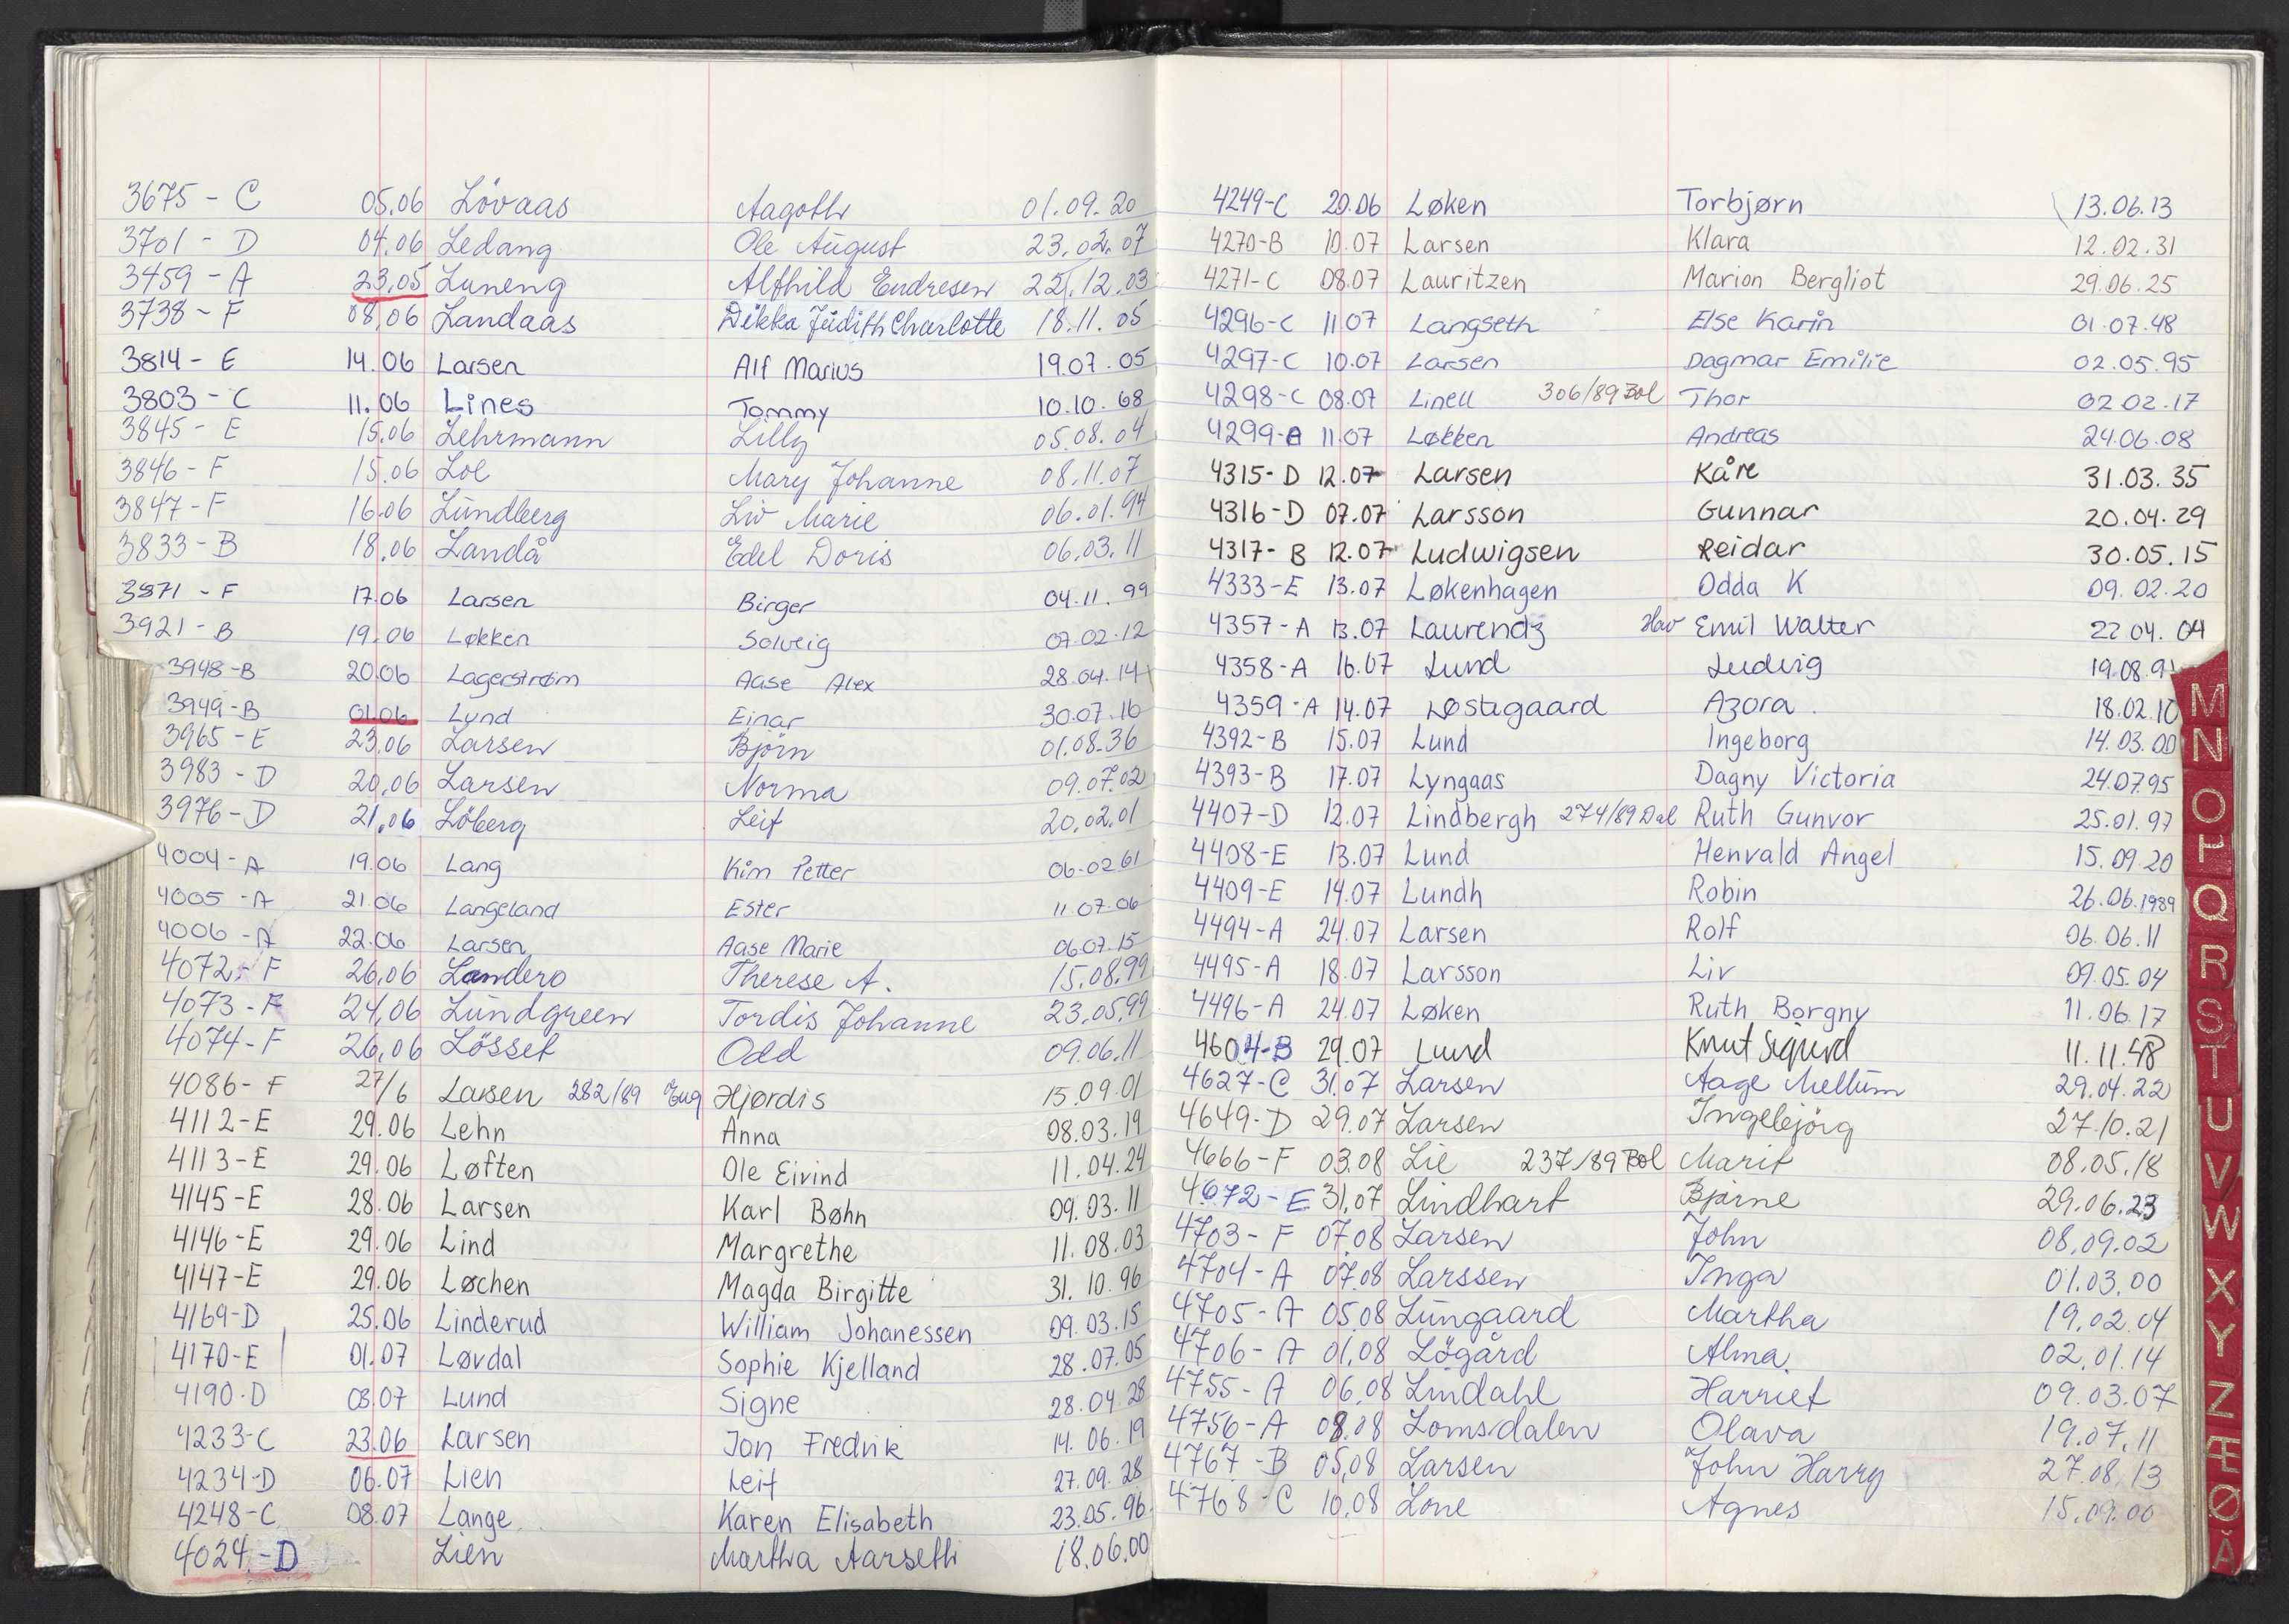 3675 - C 05.06 Lövaas Aagoth 01.09.20
3701 - D 04.06 Ledang Ole August 23.02.07
3459 - A 23.05 Luneng Alfhild Endresen 22.12.03
3738 - F 08.06 Landaas Dikka Judith Charlotte 18.11.05
3814 - E 14.06 Larsen Alf Marius 19.07.05
3803 - C 11.06 Lines Tommy 10.10.68
3845 - E 15.06 Lehrmann Lilly 05.08.04
3846 - F 15.06 Loe Mary Johanne 08.11.07
3847 - F 16.06 Lundberg Liv Marie 06.01.94
3833 - B 18.06 Landå Edel Doris 06.03.11
3871 - F 17.06 Larsen Birger 04.11.99
3921 - B 19.06 Løkken Solveig 07.02.12
3948 - B 20.06 Lagerstrøm Aase Alex 28.04.14
3949 - B 01.06 Lund Einar 30.07.16
3965 - E 23.06 Larsen Björn 01.08.36
3983 - D 20.06 Larsen Norma 09.07.02
3976 - D 21.06 Löberg Leif 20.02.01
4004 - A 19.06 Lang Kim Petter 06.02.61
4005 - A 21.06 Langeland Ester 11.07.06
4006 - A 22.06 Larsen Aase Marie 06.07.15
4072 - F 26.06 Landero Therese A. 15.08.99
4073 - F 24.06 Lundgreen Tordis Johanne 23.05.99
4074 - F 26.06 Lösset Odd 09.06.11
4086 - F 27/6 Larsen 282/89 Hjørdis 15.09.01
4112 - E 29.06 Lehn Anna 08.03.19
4113 - E 29.06 Løften Ole Eivind 11.04.24
4145 - E 28.06 Larsen Karl Bøhn 09.03.11
4146 - E 29.06 Lind Margrethe 11.08.03
4147 - E 29.06 Løchen Magda Birgitte 31.10.96
4169 - D 25.06 Linderud William Johanessen 09.03.15
4170 - E 01.07 Løvdal Sophie Kjelland 28.07.05
4190 - D 03.07 Lund Signe 28.04.28
4233 - C 23.06 Larsen Jon Fredrik 14.06.19
4234 - D 06.07 Lien Leif 27.09.28
4248 - C 08.07 Lange Karen Elisabeth 23.05.96
4024 - D Lien Martha Aarseth 18.06.00
4249-C 20.06 Løken Torbjørn 13.06.13
4270-B 10.07 Larsen Klara 12.02.31
4271-C 08.07 Lauritzen Marion Bergliot 29.06.25
4296-C 11 07 Langseth Else Karin 01.07.48
4297-C 10.07 Larsen Dagmar Emilie 02.05.95
4298-C 08.07 Linell 306/89 Bol Thor 02 02.17
4299-A 11.07 Løkken Andreas 24.06.08
4315-D 12.07 Larsen Kåre 31.03.35
4316-D 07.07 Larsson Gunnar 20.04.29
4317-B 12.07 Ludwigsen Reidar 30.05.15
4333-E 13.07 Løkenhagen Odda K 09.02.20
4357-A 13.07 Laurendz Hav Emil Walter 22 04.04
4358-A 16.07 Lund Ludvig 19.08.91
4359-A 14.07 Løstegaard Azora 18.02.10
4392-B 15.07 Lund Ingeborg 14.03.00
4393-B 17.07 Lyngaas Dagny Victoria 24.07.95
4407-D 12.07 Lindbergh 274/89 Dal Ruth Gunvor 25.01.97
4408-E 13.07 Lund Henvald Angel 15.09.20
4409-E 14.07 Lundh Robin 26.06.1989
4494-A 24.07 Larsen Rolf 06.06.11
4495-A 18.07 Larsson Liv 09.05.04
4496-A 24.07 Løken Ruth Borgny 11.06.17
4604-B 29.07 Lund Knut Sigurd 11.11.48
4627-C 31.07 Larsen Aage Mellum 29.04.22
4649-D 29.07 Larsen Ingebjörg 27.10.21
4666-F 03.08 Lie 237/89 Bol Marit 08.05.18
4672-E 31.07 Lindhart Bjarne 29.06.23
4703-F 07.08 Larsen John 08.09.02
4704-A 07.08 Larssen Inga 01.03.00
4705-A 05.08 Lungaard Martha 19.02.04
4706-A 01.08 Lögård Alma 02.01.14
4755-A 06.08 Lindahl Harriet 09.03.07
4756-A 08.08 Lomsdalen Olava 19.07.11
4767-B 05.08 Larsen John Harry 27.08.13
4768-C 10.08 Lone Agnes 15.09.00
M
N
O
P
Q
R
S
T
U
V
W
X
Y
Z
Æ
Ø
Å